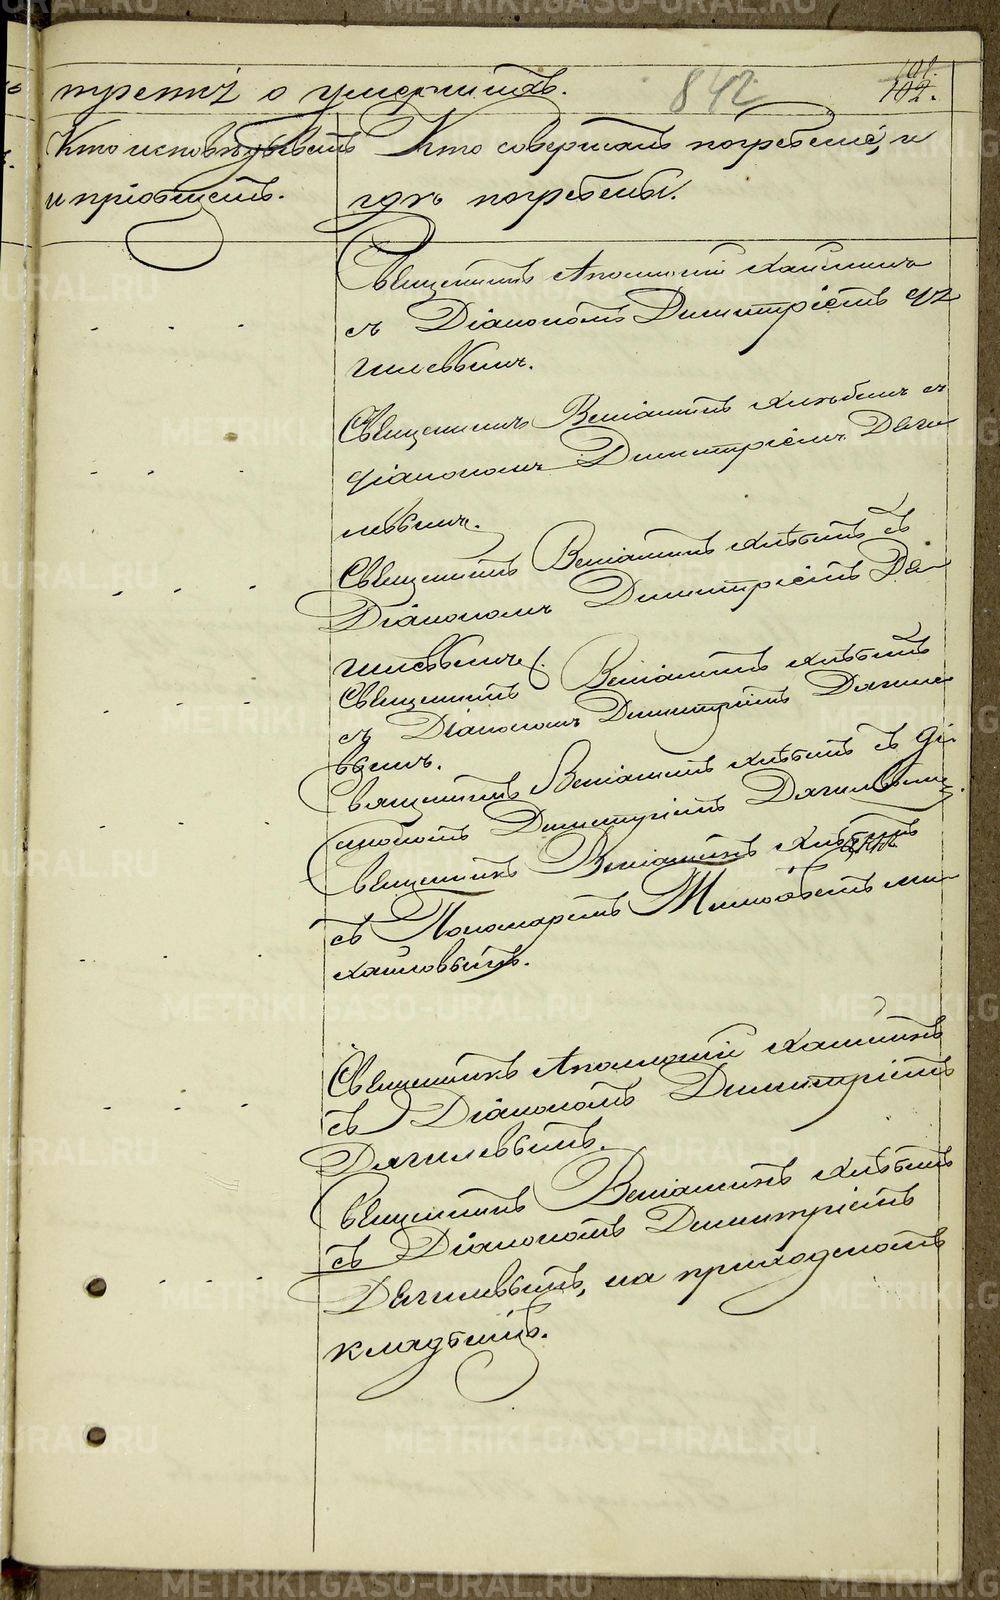 третія о умершихъ.
842
101.
102.
Кто исповѣдывалъ
и пріобщалъ.
Кто совершалъ погребеніе, и
гдѣ погребены.
Священникъ Аполлоній
съ Діакономъ Димитріемъ Дя
гилевымъ.
Священникъ Веніаминъ Хлѣбинъ съ
діакономъ Димитріемъ Даги
левымъ.
Священникъ Веніаминъ Хлѣбинъ съ
Діакономъ Димитріемъ Дя
гилевымъ.
Священникъ Веніаминъ Хлѣбинъ
съ Діакономъ Димитріемъ Дягиле
вымъ.
Священникъ Веніаминъ Хлѣбинъ съ Ді
акономъ Димитріемъ Дягилевымъ.
Священникъ Веніаминъ Хлѣбинъ
съ Пономаремъ Ми
хайловымъ.
Священникъ Аполлоній
съ Діакономъ Димитріемъ
Дягилевымъ.
Священникъ Веніаминъ Хлѣбинъ
съ Діакономъ Димитріемъ
Дягилевымъ, на приходскомъ
кладбищѣ.
METRIKI.GASO-URAL.RU